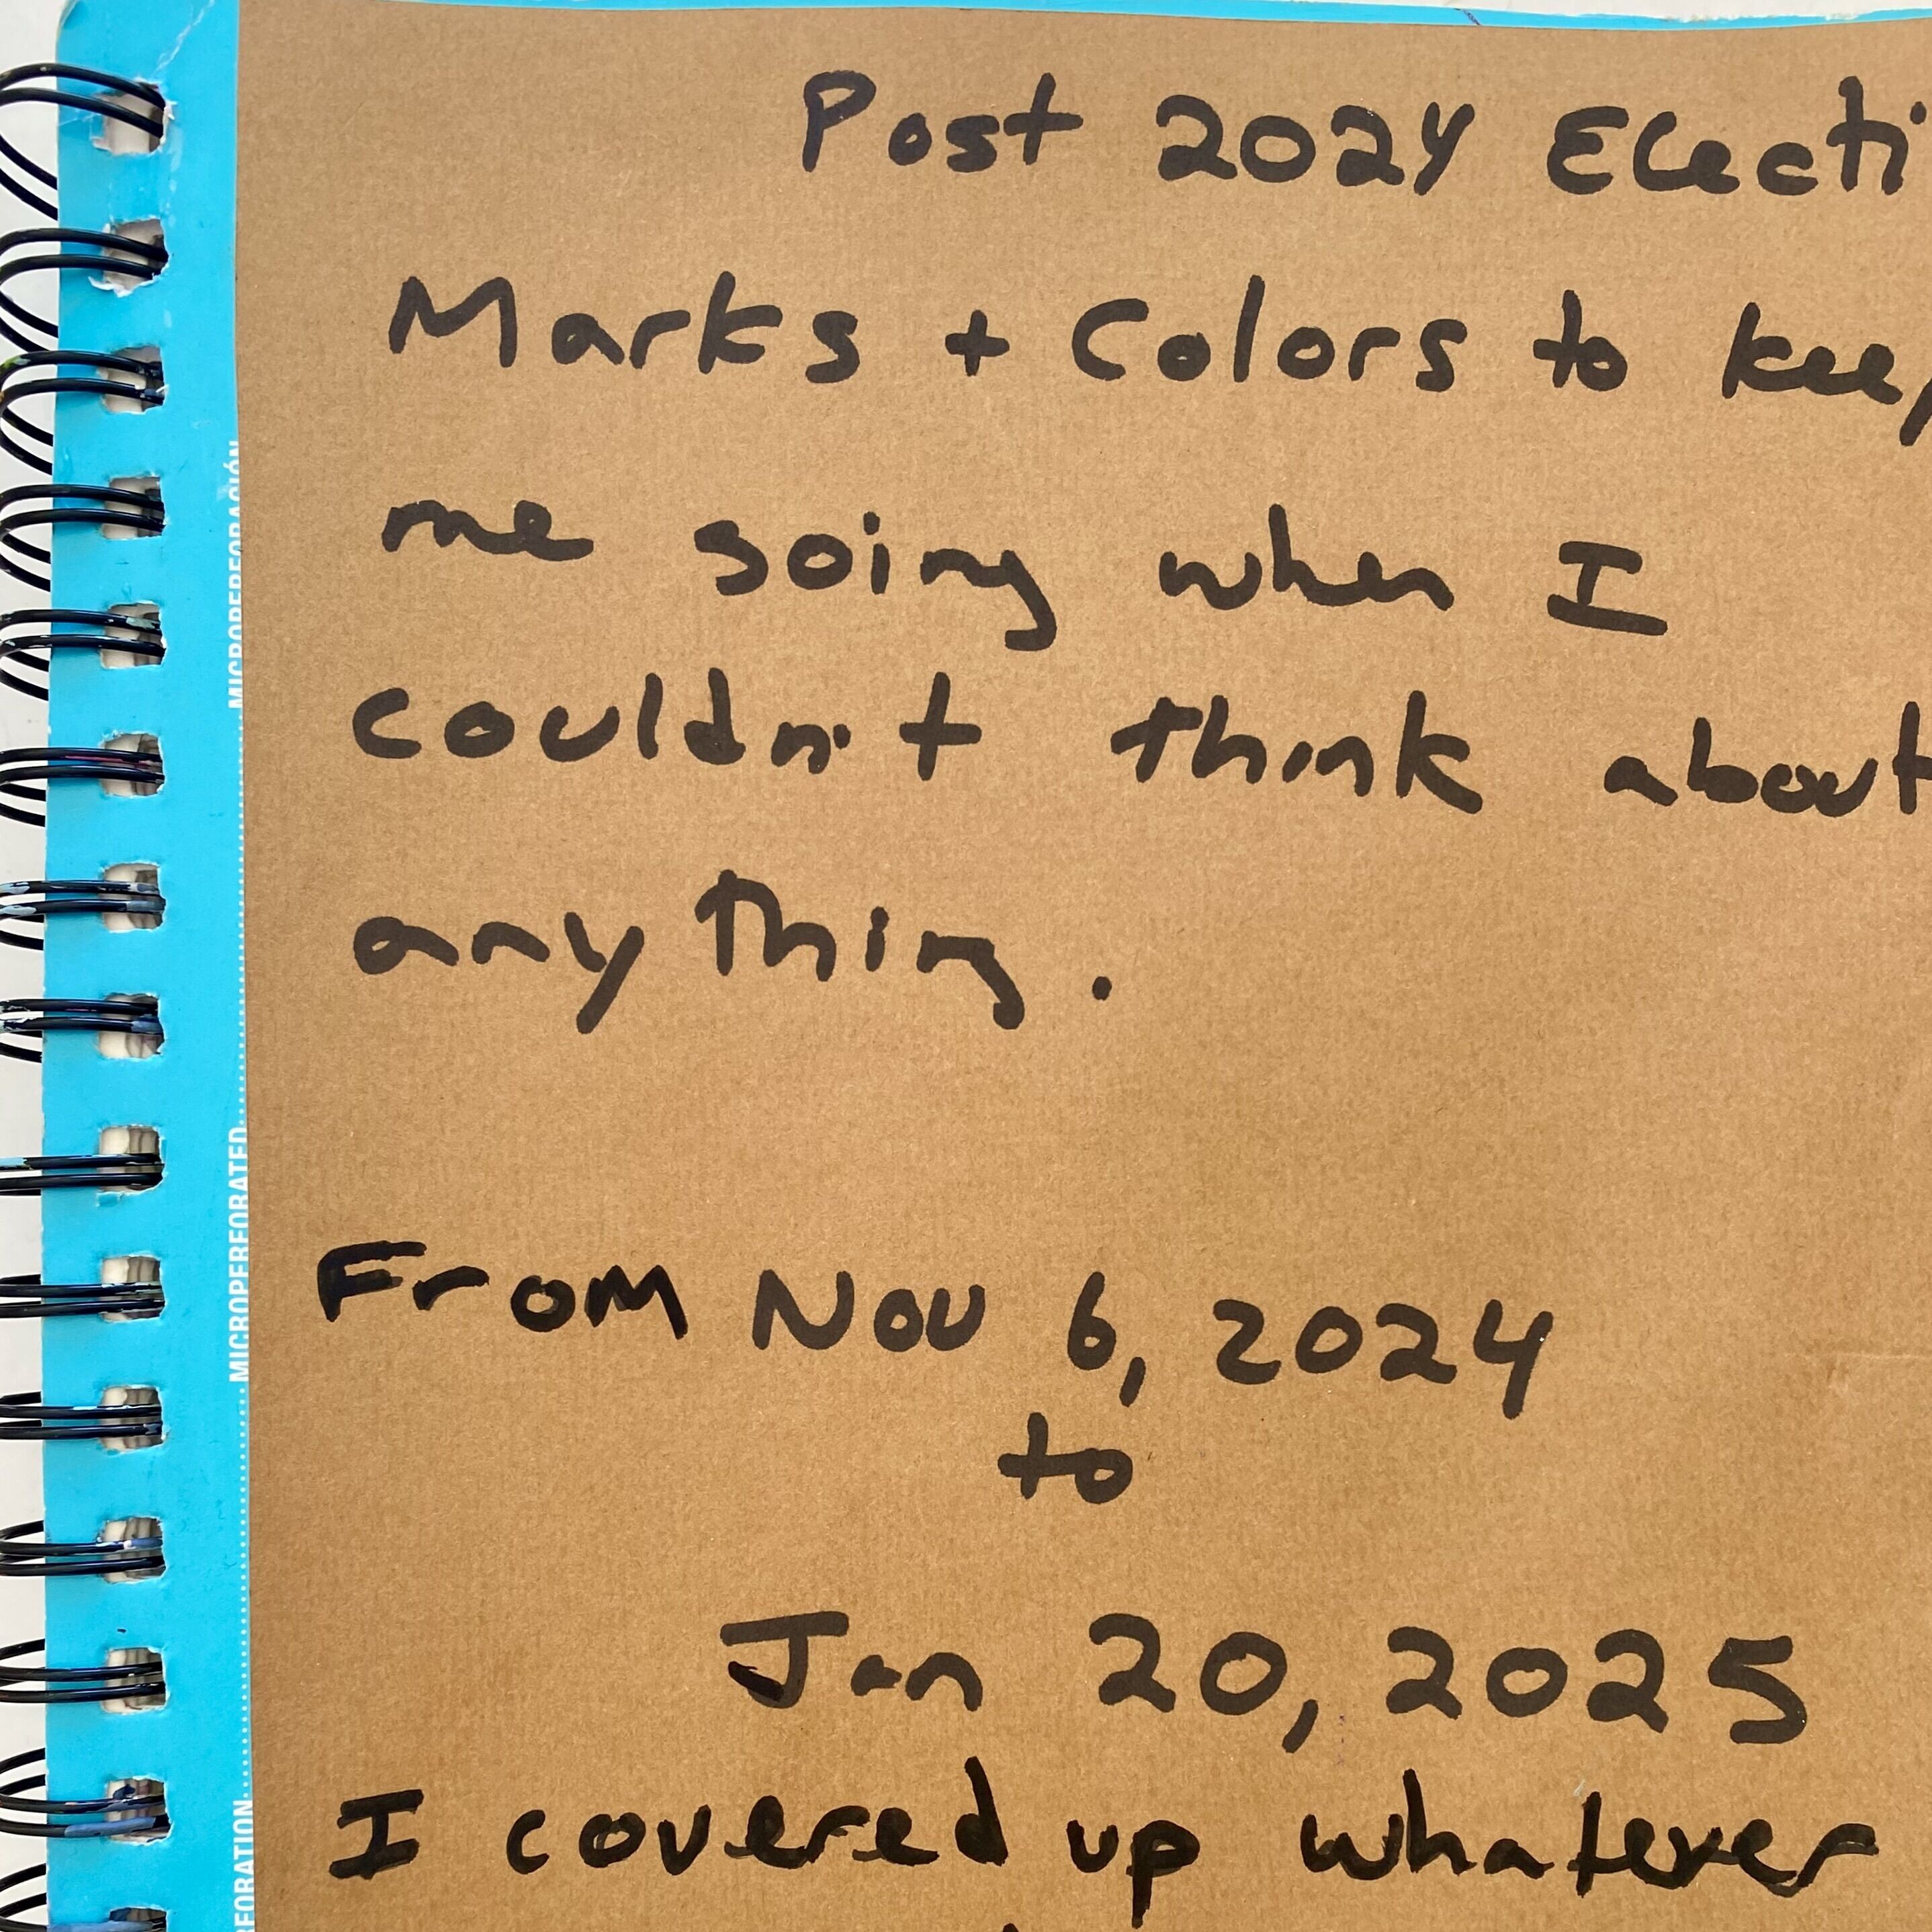 Post 2024 Electi
Marks + Colors to keep
me going when I
couldn't think about
anything.
From Nov 6, 2024
to
Jan 20, 2025
I covered up whatever
MICROPERFORACIÓN
MICROPERFORATED
FORATION